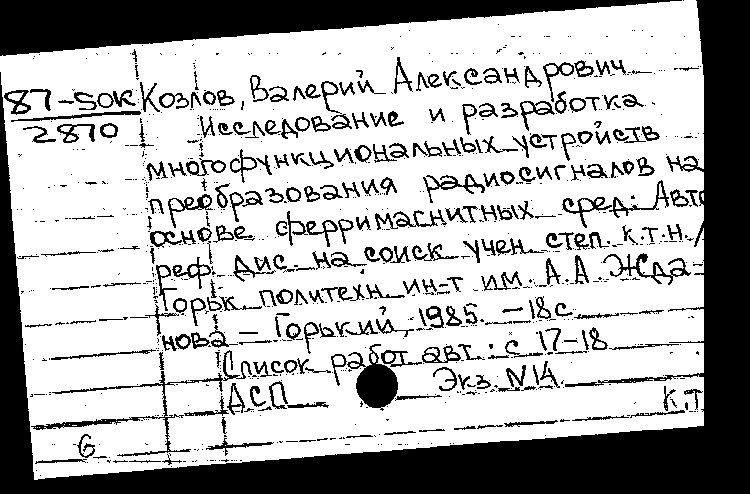 87-50K Козлов, Валерий Александрович
2870 Исследование и разработка
многофункциональных устройств
преобразования радиосигналов на
основе ферримагнитных сред: Авто
реф. дис. на соиск учен. степ. к.т.н. /
Горьк. политехн. ин-т им. А.А. Жда-
нова - Горький, 1985. - 18 с.
Список работ авт.: с 17-18
АСП Экз. N14
К.Т
6